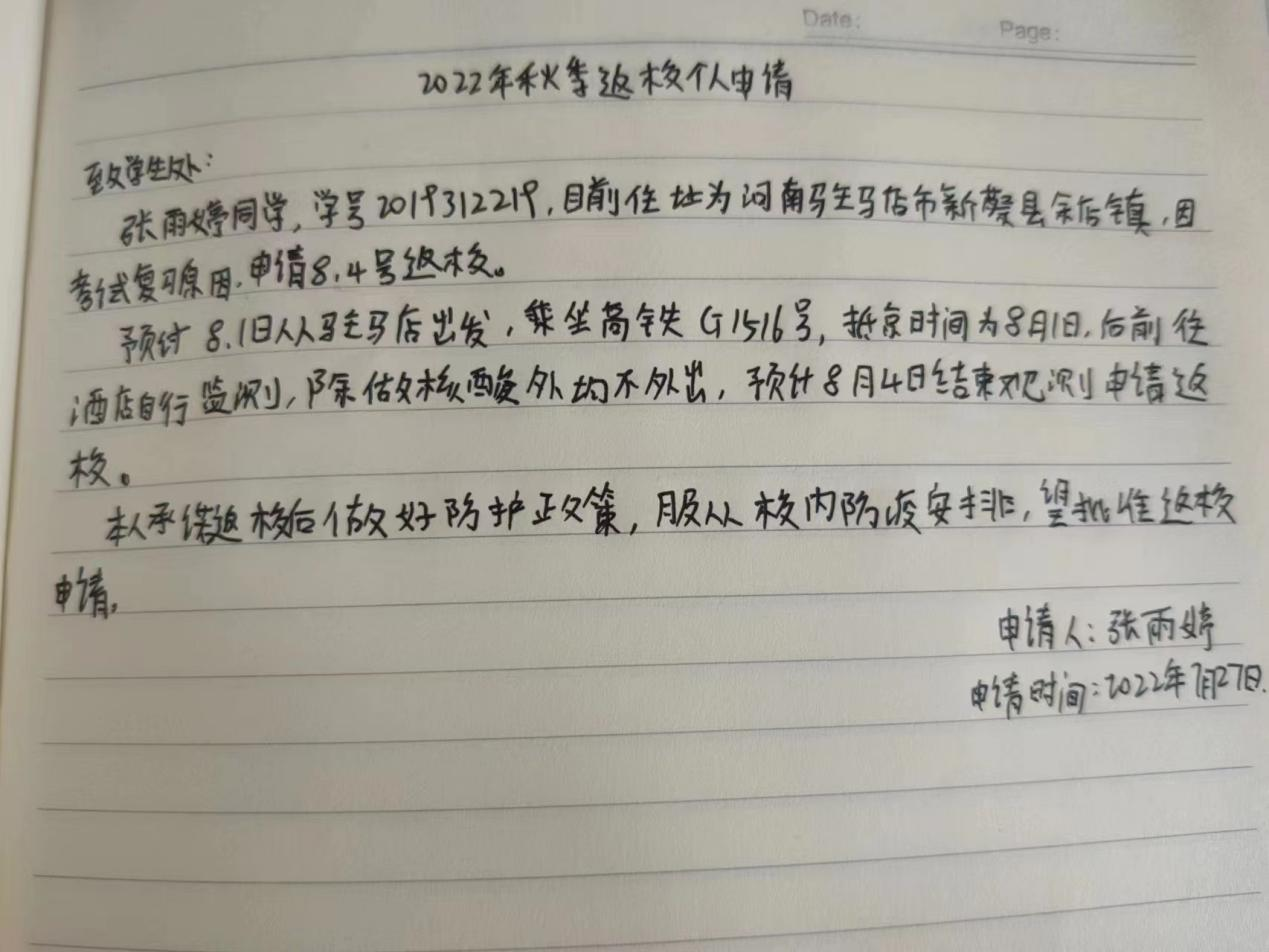 Date:
Page:
2022年秋季返校个人申请
致学生处:
张雨婷同学,学号2019312219,目前住址为河南驻马店市新蔡县余店镇,因
考试复习原因,申请8.4号返校。
预计8.1日从驻马店出发,乘坐高铁G1516号,抵京时间为8月1日,后前往
酒店自行监测,除做核酸外均不外出,预计8月4日结束观测申请返
校。
本人承诺返校后做好防护政策,服从校内防疫安排,望批准返校
申请。
申请人:张雨婷
申请时间:2022年7月27日.